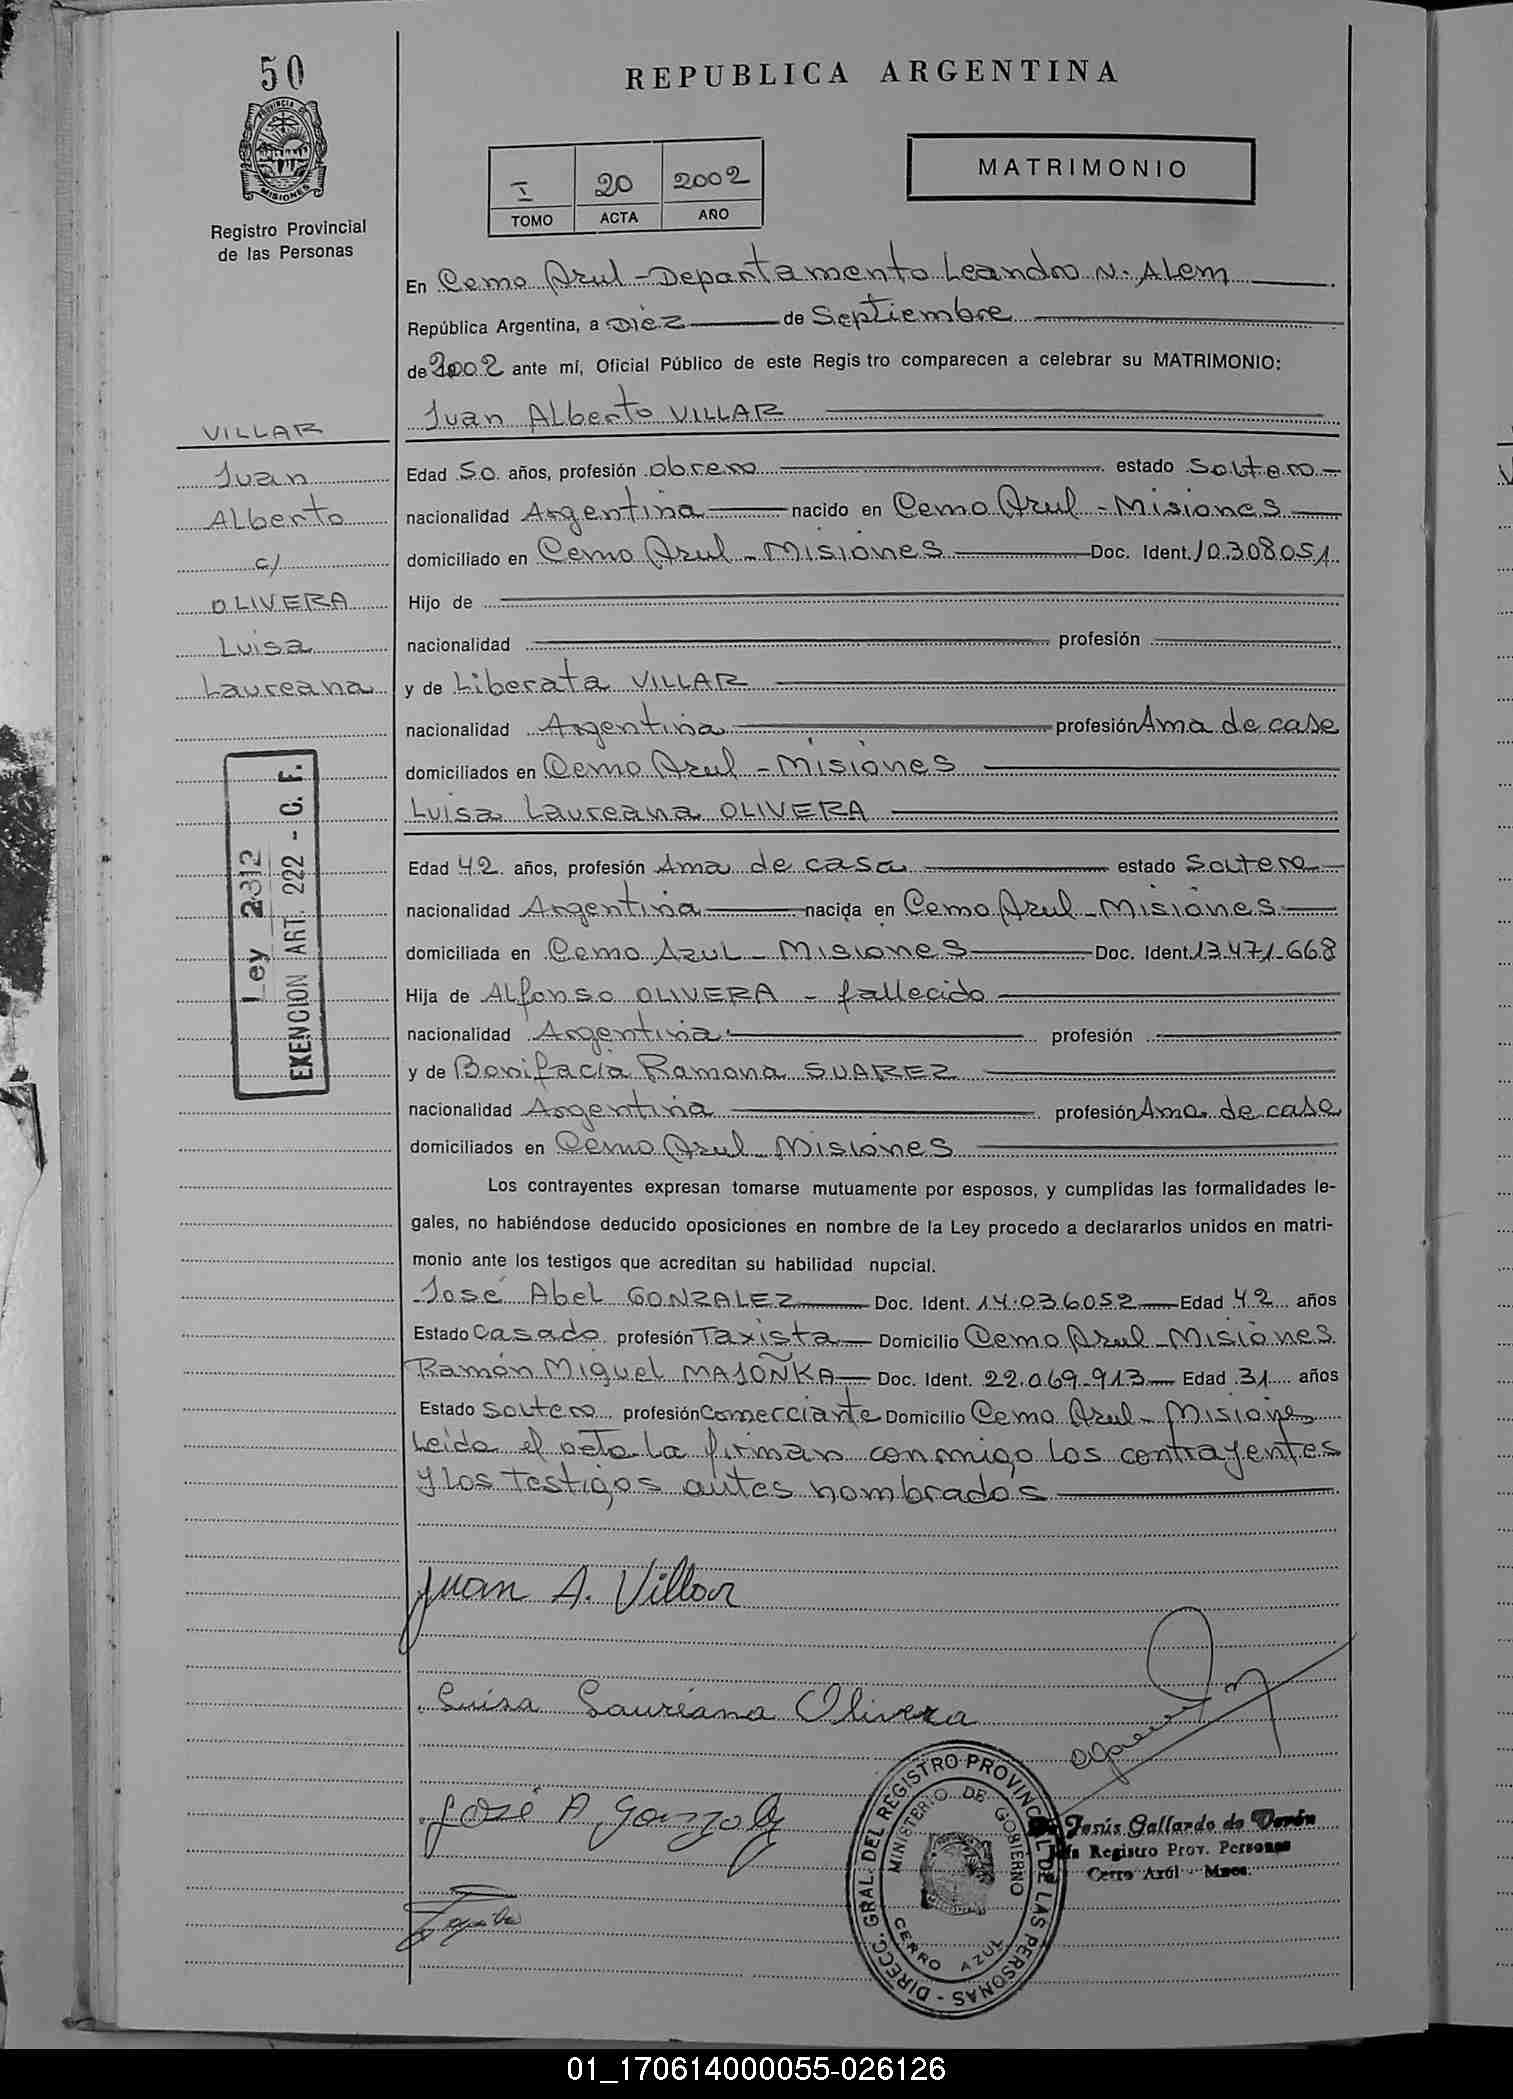 50
REPUBLICA ARGENTINA
PROVINCIA DE MISIONES
MATRIMONIO
I 20 2002
TOMO ACTA AÑO
Registro Provincial
de las Personas
En Cerro Azul - Departamento Leandro N. Alem
República Argentina, a Diez de Septiembre
de 2002 ante mí, Oficial Público de este Registro comparecen a celebrar su MATRIMONIO:
Juan Alberto VILLAR
VILLAR
Juan
Alberto
c/
OLIVERA
Luisa
Laureana
Edad 50 años, profesión obrero estado Soltero
nacionalidad Argentina nacido en Cerro Azul - Misiones
domiciliado en Cerro Azul - Misiones Doc. Ident. 10.308051
Hijo de
nacionalidad profesión
y de Liberata VILLAR
nacionalidad Argentina profesión Ama de casa
domiciliados en Cerro Azul - Misiones
Luisa Laureana OLIVERA
Ley 2312
EXENCION ART. 222 - C. F.
Edad 42 años, profesión Ama de casa estado Soltera
nacionalidad Argentina nacida en Cerro Azul - Misiones
domiciliada en Cerro Azul - Misiones Doc. Ident. 13.471.668
Hija de Alfonso OLIVERA - fallecido
nacionalidad Argentina profesión
y de Bonifacia Ramona SUAREZ
nacionalidad Argentina profesión Ama de casa
domiciliados en Cerro Azul - Misiones
Los contrayentes expresan tomarse mutuamente por esposos, y cumplidas las formalidades le-
gales, no habiéndose deducido oposiciones en nombre de la Ley procedo a declararlos unidos en matri-
monio ante los testigos que acreditan su habilidad nupcial.
José Abel GONZALEZ Doc. Ident. 14.036052 Edad 42 años
Estado Casado profesión Taxista Domicilio Cerro Azul - Misiones
Ramón Miguel MAJOÑKA Doc. Ident. 22.069.913 Edad 31 años
Estado Soltero profesión Comerciante Domicilio Cerro Azul - Misiones
Leida el acta la firman conmigo los contrayentes
y los testigos antes nombrados
Juan A. Villar
Luisa Laureana Olivera
José A Gonzalez
DIRECC. GRAL. DEL REGISTRO PROVINCIAL DE LAS PERSONAS
MINISTERIO DE GOBIERNO
CERRO AZUL
Jesús Gallardo de Verón
Registro Prov. Personas
Cerro Azul - Mnes.
01_170614000055-026126